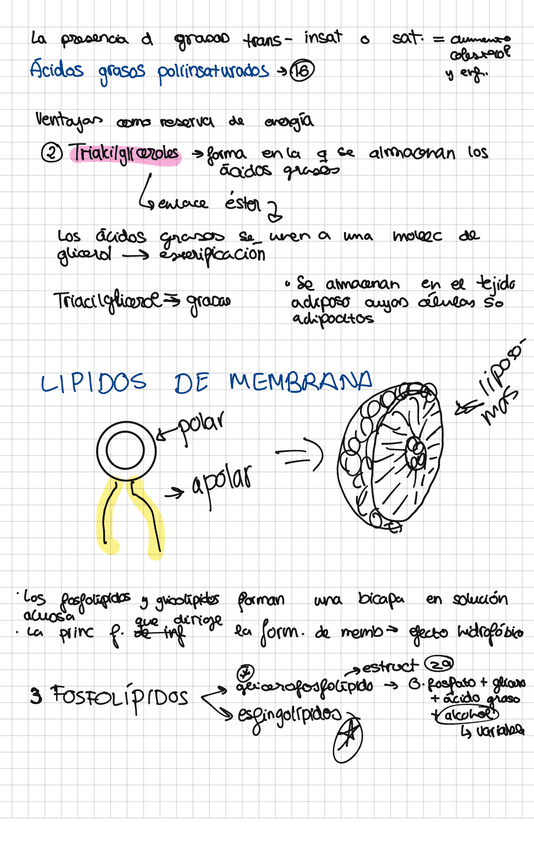 La presencia d grasas trans- insat o sat. = aumento
colesterol
y enf.
Ácidos grasos poliinsaturados → 16
Ventajas como reserva de energía
② Triacilgliceroles → forma en la q se almacenan los
ácidos grasos
↳ enlace éster
Los ácidos grasos se unen a una molec de
glicerol → esterificacion
Triacilglicerol = grasas
• Se almacenan en el tejido
adiposo cuyas células so
adipocitos
LIPIDOS DE MEMBRANA
liposo-
mas
polar
⇒
→ apolar
· Los fosfolípidos y glicolípidos forman una bicapa en solución
acuosa
· La princ f. de inf que dirige la form. de memb → efecto hidrofóbico
→ estruct 20
glicerofosfolípido → G. fosfato + glicero
3 FOSFOLÍPIDOS
+ ácido graso
+ alcohol
esfingolípidos
↳ variable